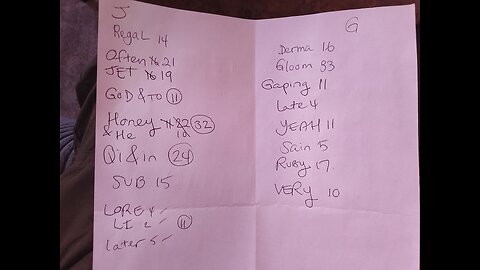 J
Regal 14
Often 21
JET 19
GOD & TO 11
Honey 22 32
& He 10
Qi & in 24
SUB 15
LORE 4
LI 2 11
Later 5
G
Derma 16
Gloom 33
Gaping 11
Late 4
YEAH 11
Sain 5
RUBY 17
VERY 10